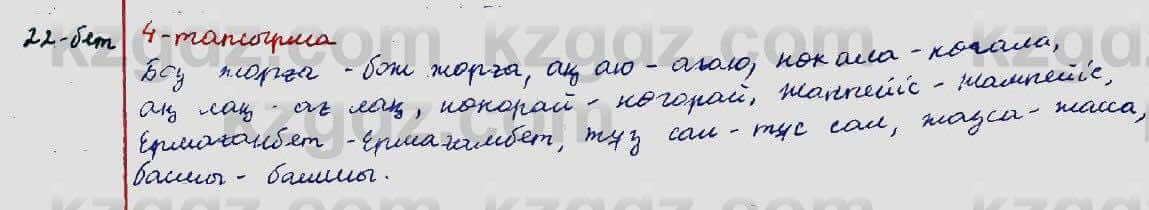 22-бет 4-тапсырма
Боз жорға - бож жорға, ақ аю - ағаю, көк ала - көгала,
ақ лақ - ағ лақ, көкорай - көгорай, жанпейіс - жампейіс,
Ермағанбет - Ермағамбет, түз сал - түс сал, жазса - жасса,
басшы - башшы.